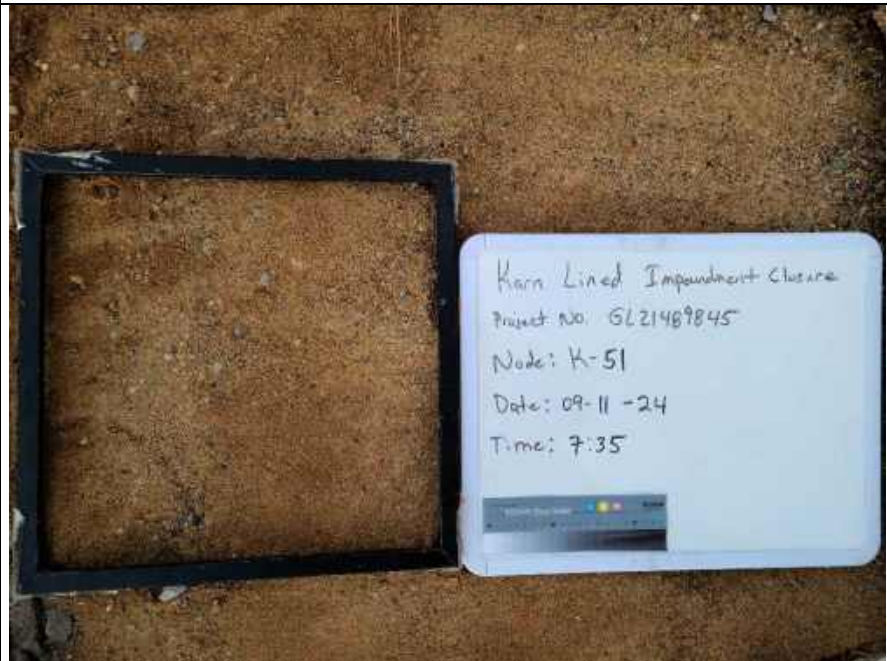 Karn Lined Impoundment Closure
Project No. GL21489845
Node: K-51
Date: 09-11-24
Time: 7:35